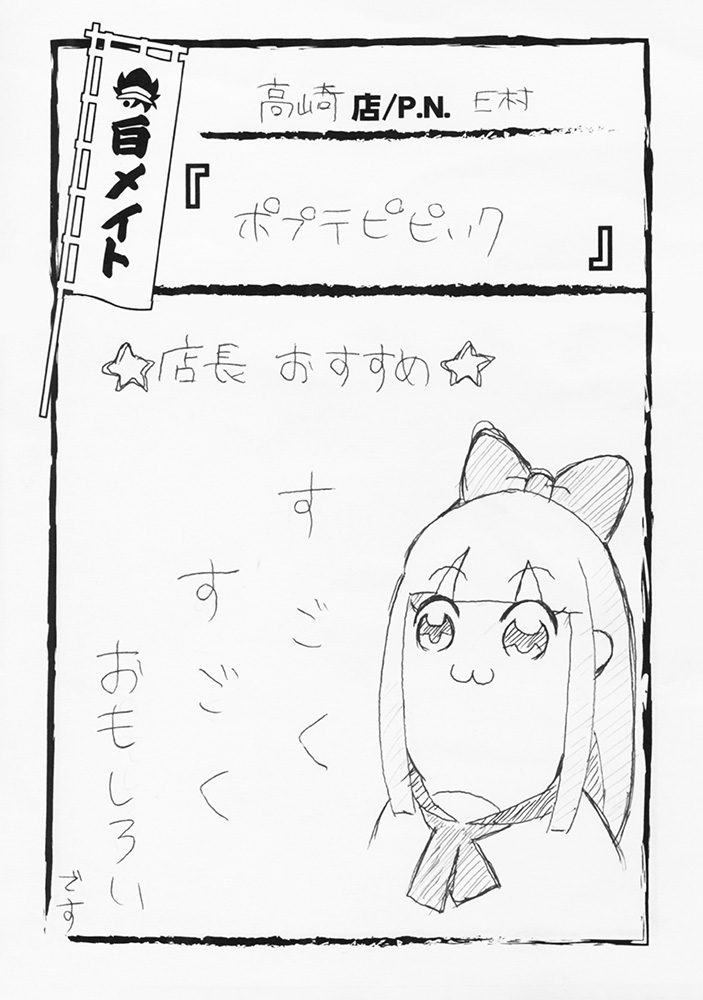 高崎 店/P.N. E村
白メイト
『ポプテピピック』
☆店長 おすすめ☆
すごく
すごく
おもしろい
です